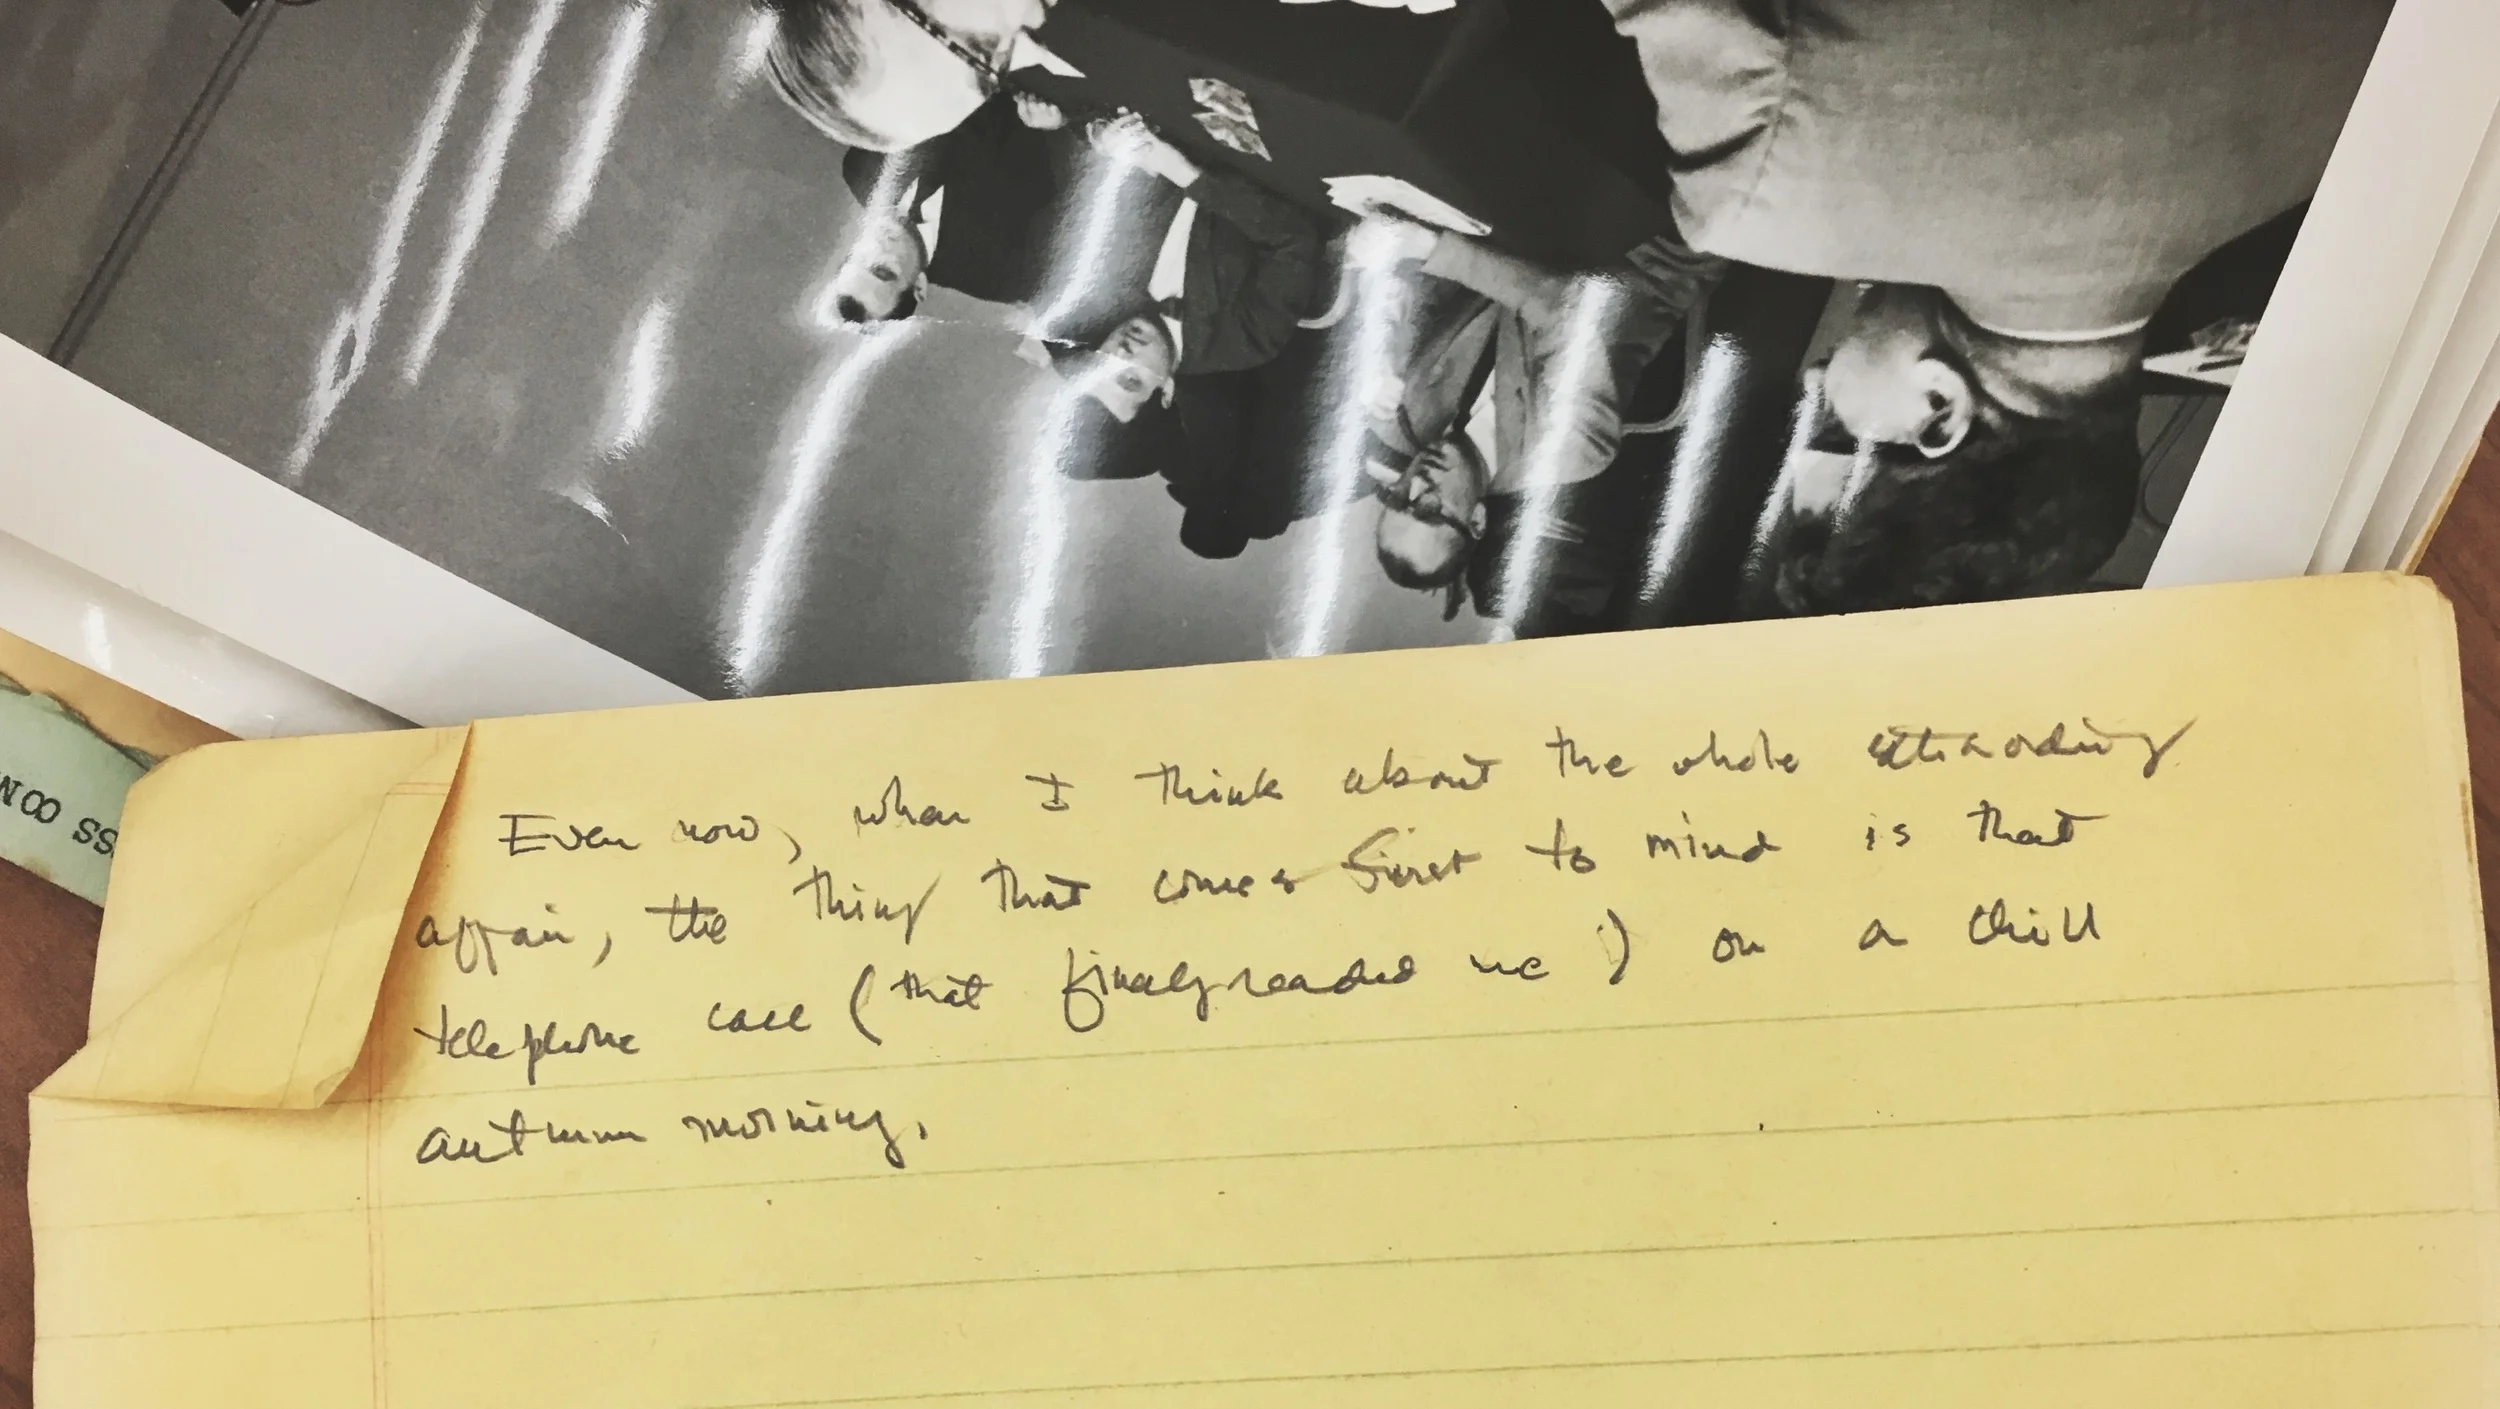 Even now, when I think about the whole extraordinary
affair, the thing that comes first to mind is that
telephone call (that finally reached me) on a chill
autumn morning.
SS CON